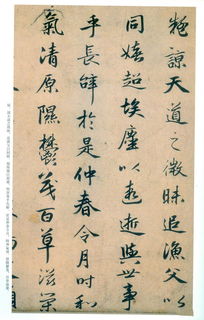 疑諒天道之微昧追漁父以
同嬉超埃塵以遐逝與世事
乎長辭於是仲春令月時和
氣清原隰鬱茂百草滋榮